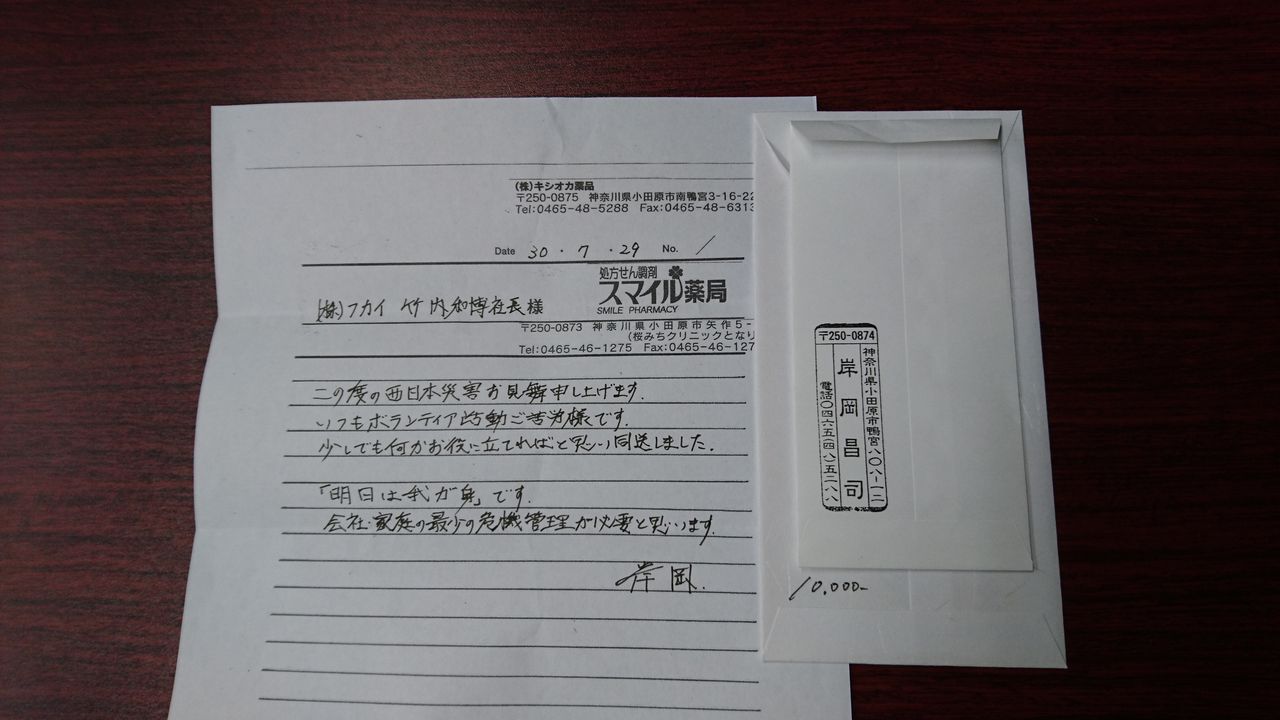 (株)キシオカ薬品
〒250-0875 神奈川県小田原市南鴨宮3-16-22
Tel:0465-48-5288 Fax:0465-48-6313
Date 30・7・29 No. 1
処方せん調剤
スマイル薬局
SMILE PHARMACY
(株)フカイ 竹内和博社長様
〒250-0873 神奈川県小田原市矢作5-
(桜みちクリニックとなり
Tel:0465-46-1275 Fax:0465-46-127
この度の西日本災害お見舞申し上げます.
いつもボランティア活動ご苦労様です.
少しでも何かお役に立てればと思い同送しました.
「明日は我が身」です.
会社・家庭の最少の危機管理が必要と思います.
岸岡.
〒250-0874
神奈川県小田原市鴨宮八〇八-一二
岸岡昌司
電話〇四六五(四八)五二八八
10.000-